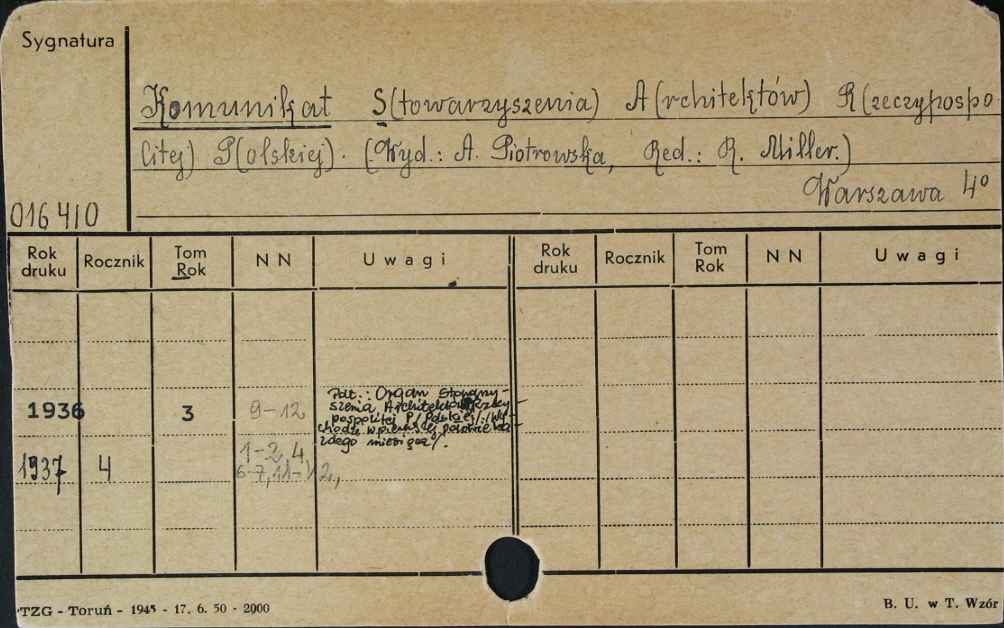 Sygnatura
Komunikat S(towarzyszenia) A(rchitektów) R(zeczypospo
litej) P(olskiej). (Wyd.: A. Piotrowska, Red.: R. Miller.)
Warszawa 4º
016410
Rok druku Rocznik Tom Rok N N Uwagi Rok druku Rocznik Tom Rok N N Uwagi
1936 3 9-12
Pdt.: Organ Stowarzy-
szenia Architektów Rzeczy-
pospolitej P/olskiej/. /Wy-
chodzi w pierwszej połowie ka-
żdego miesiąca/.
1937 4 1-2, 4,
6-7, 11-12,
TZG - Toruń - 1945 - 17. 6. 50 - 2000
B. U. w T. Wzór